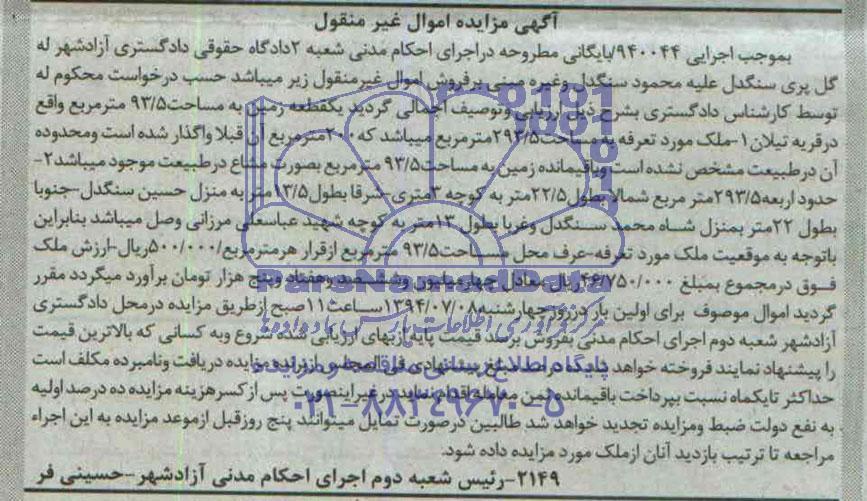 آگهی مزایده اموال غیر منقول
بموجب اجرایی ۹۴۰۰۴۴/بایگانی مطروحه دراجرای احکام مدنی شعبه ۲دادگاه حقوقی دادگستری آزادشهر له
گل پری سنگدل علیه محمود سنگدل وغیره مبنی برفروش اموال غیرمنقول زیر میباشد حسب درخواست محکوم له
توسط کارشناس دادگستری بشرح ذیل ارزیابی وتوصیف اجمالی گردید یکقطعه زمین به مساحت۹۳/۵ مترمربع واقع
درقریه تیلان۱-ملک مورد تعرفه به مساحت۲۹۳/۵مترمربع میباشد که ۲۰۰مترمربع آن قبلا واگذار شده است ومحدوده
آن درطبیعت مشخص نشده است وباقیمانده زمین به مساحت۹۳/۵ مترمربع بصورت مشاع درطبیعت موجود میباشد۲-
حدود اربعه۲۹۳/۵متر مربع شمالا بطول۲۲/۵متر به کوچه ۳متری-شرقا بطول۱۳/۵متر به منزل حسین سنگدل-جنوبا
بطول ۲۲متر بمنزل شاه محمد سنگدل وغربا بطول ۱۳متر به کوچه شهید عباسعلی مرزانی وصل میباشد بنابراین
باتوجه به موقعیت ملک مورد تعرفه-عرف محل مساحت۹۳/۵ مترمربع ازقرار هرمترمربع/۵۰۰/۰۰۰ریال-ارزش ملک
فوق درمجموع بمبلغ ۴۶/۷۵۰/۰۰۰ریال معادل چهارمیلیون وششصد وهفتاد وپنج هزار تومان برآورد میگردد مقرر
گردید اموال موصوف برای اولین بار درروزچهارشنبه۱۳۹۴/۰۷/۰۸ساعت۱۱صبح ازطریق مزایده درمحل دادگستری
آزادشهر شعبه دوم اجرای احکام مدنی بفروش برسد قیمت پایه ازبهای ارزیابی شده شروع وبه کسانی که بالاترین قیمت
را پیشنهاد نمایند فروخته خواهد شد ده درصد مبلغ پیشنهادی فی المجلس ازبرنده مزایده دریافت ونامبرده مکلف است
حداکثر تایکماه نسبت بپرداخت باقیمانده ثمن معامله اقدام نماید درغیراینصورت پس ازکسرهزینه مزایده ده درصد اولیه
به نفع دولت ضبط ومزایده تجدید خواهد شد طالبین درصورت تمایل میتوانند پنج روزقبل ازموعد مزایده به این اجراء
مراجعه تا ترتیب بازدید آنان ازملک مورد مزایده داده شود.
۲۱۴۹-رئیس شعبه دوم اجرای احکام مدنی آزادشهر-حسینی فر
ParsNamadData
پایگاه اطلاع رسانی مناقصه و مزایده
۰۲۱-۸۸۳۴۹۶۷۰-۵